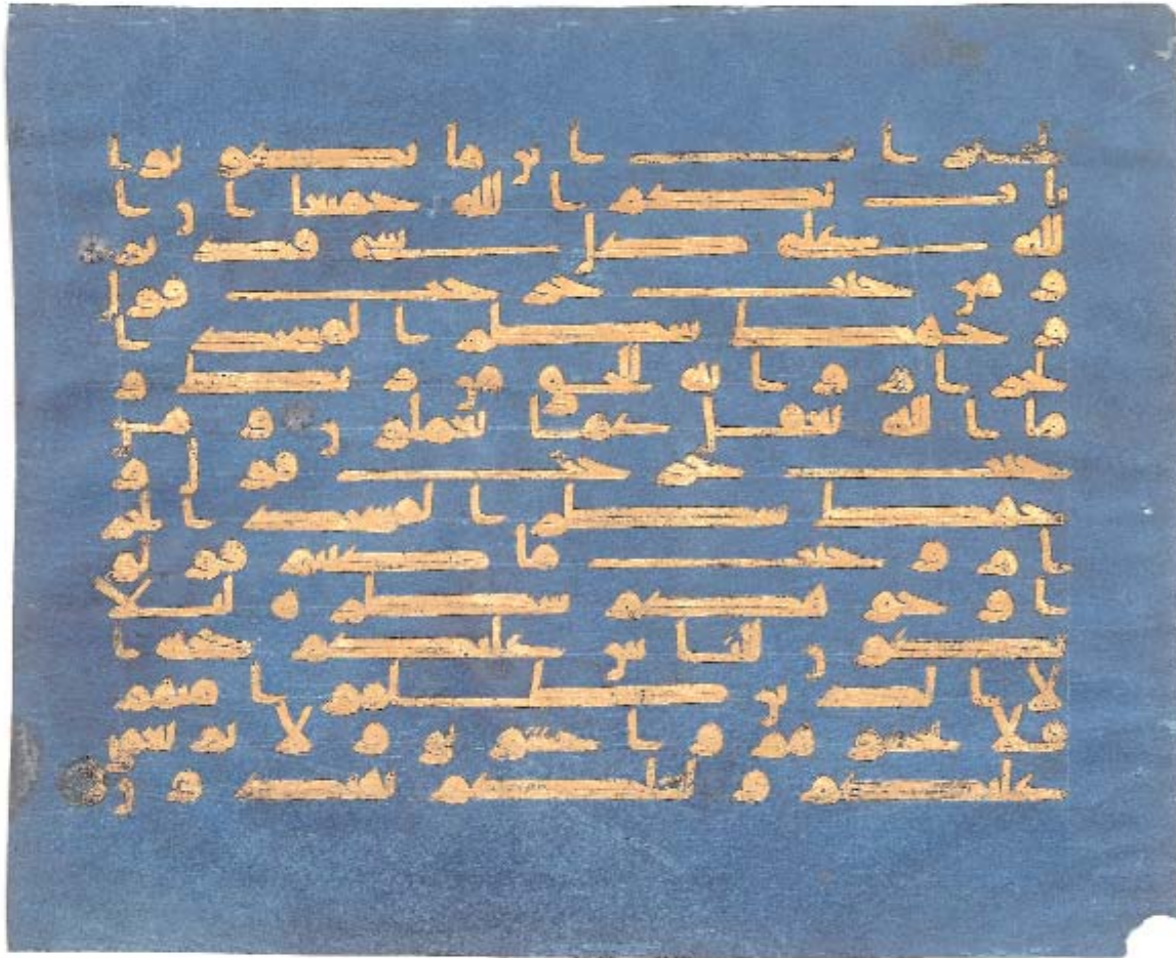 لخيرات اين ما تكونوا
يات بكم الله جميعا ان ا
لله على كل شى قدير
ومن حيث خرجت فول
وجهك شطر المسجد ا
لحرام وانه للحق من ربك و
ما الله بغفل عما تعملون ومن
حيث خرجت فول و
جهك شطر المسجد الحر
ام وحيث ما كنتم فولو
ا وجوهكم شطره لئلا
يكون للناس عليكم حجة ا
لا الذين ظلموا منهم
فلا تخشوهم واخشونى ولاتم نعمتى
عليكم ولعلكم تهتدون